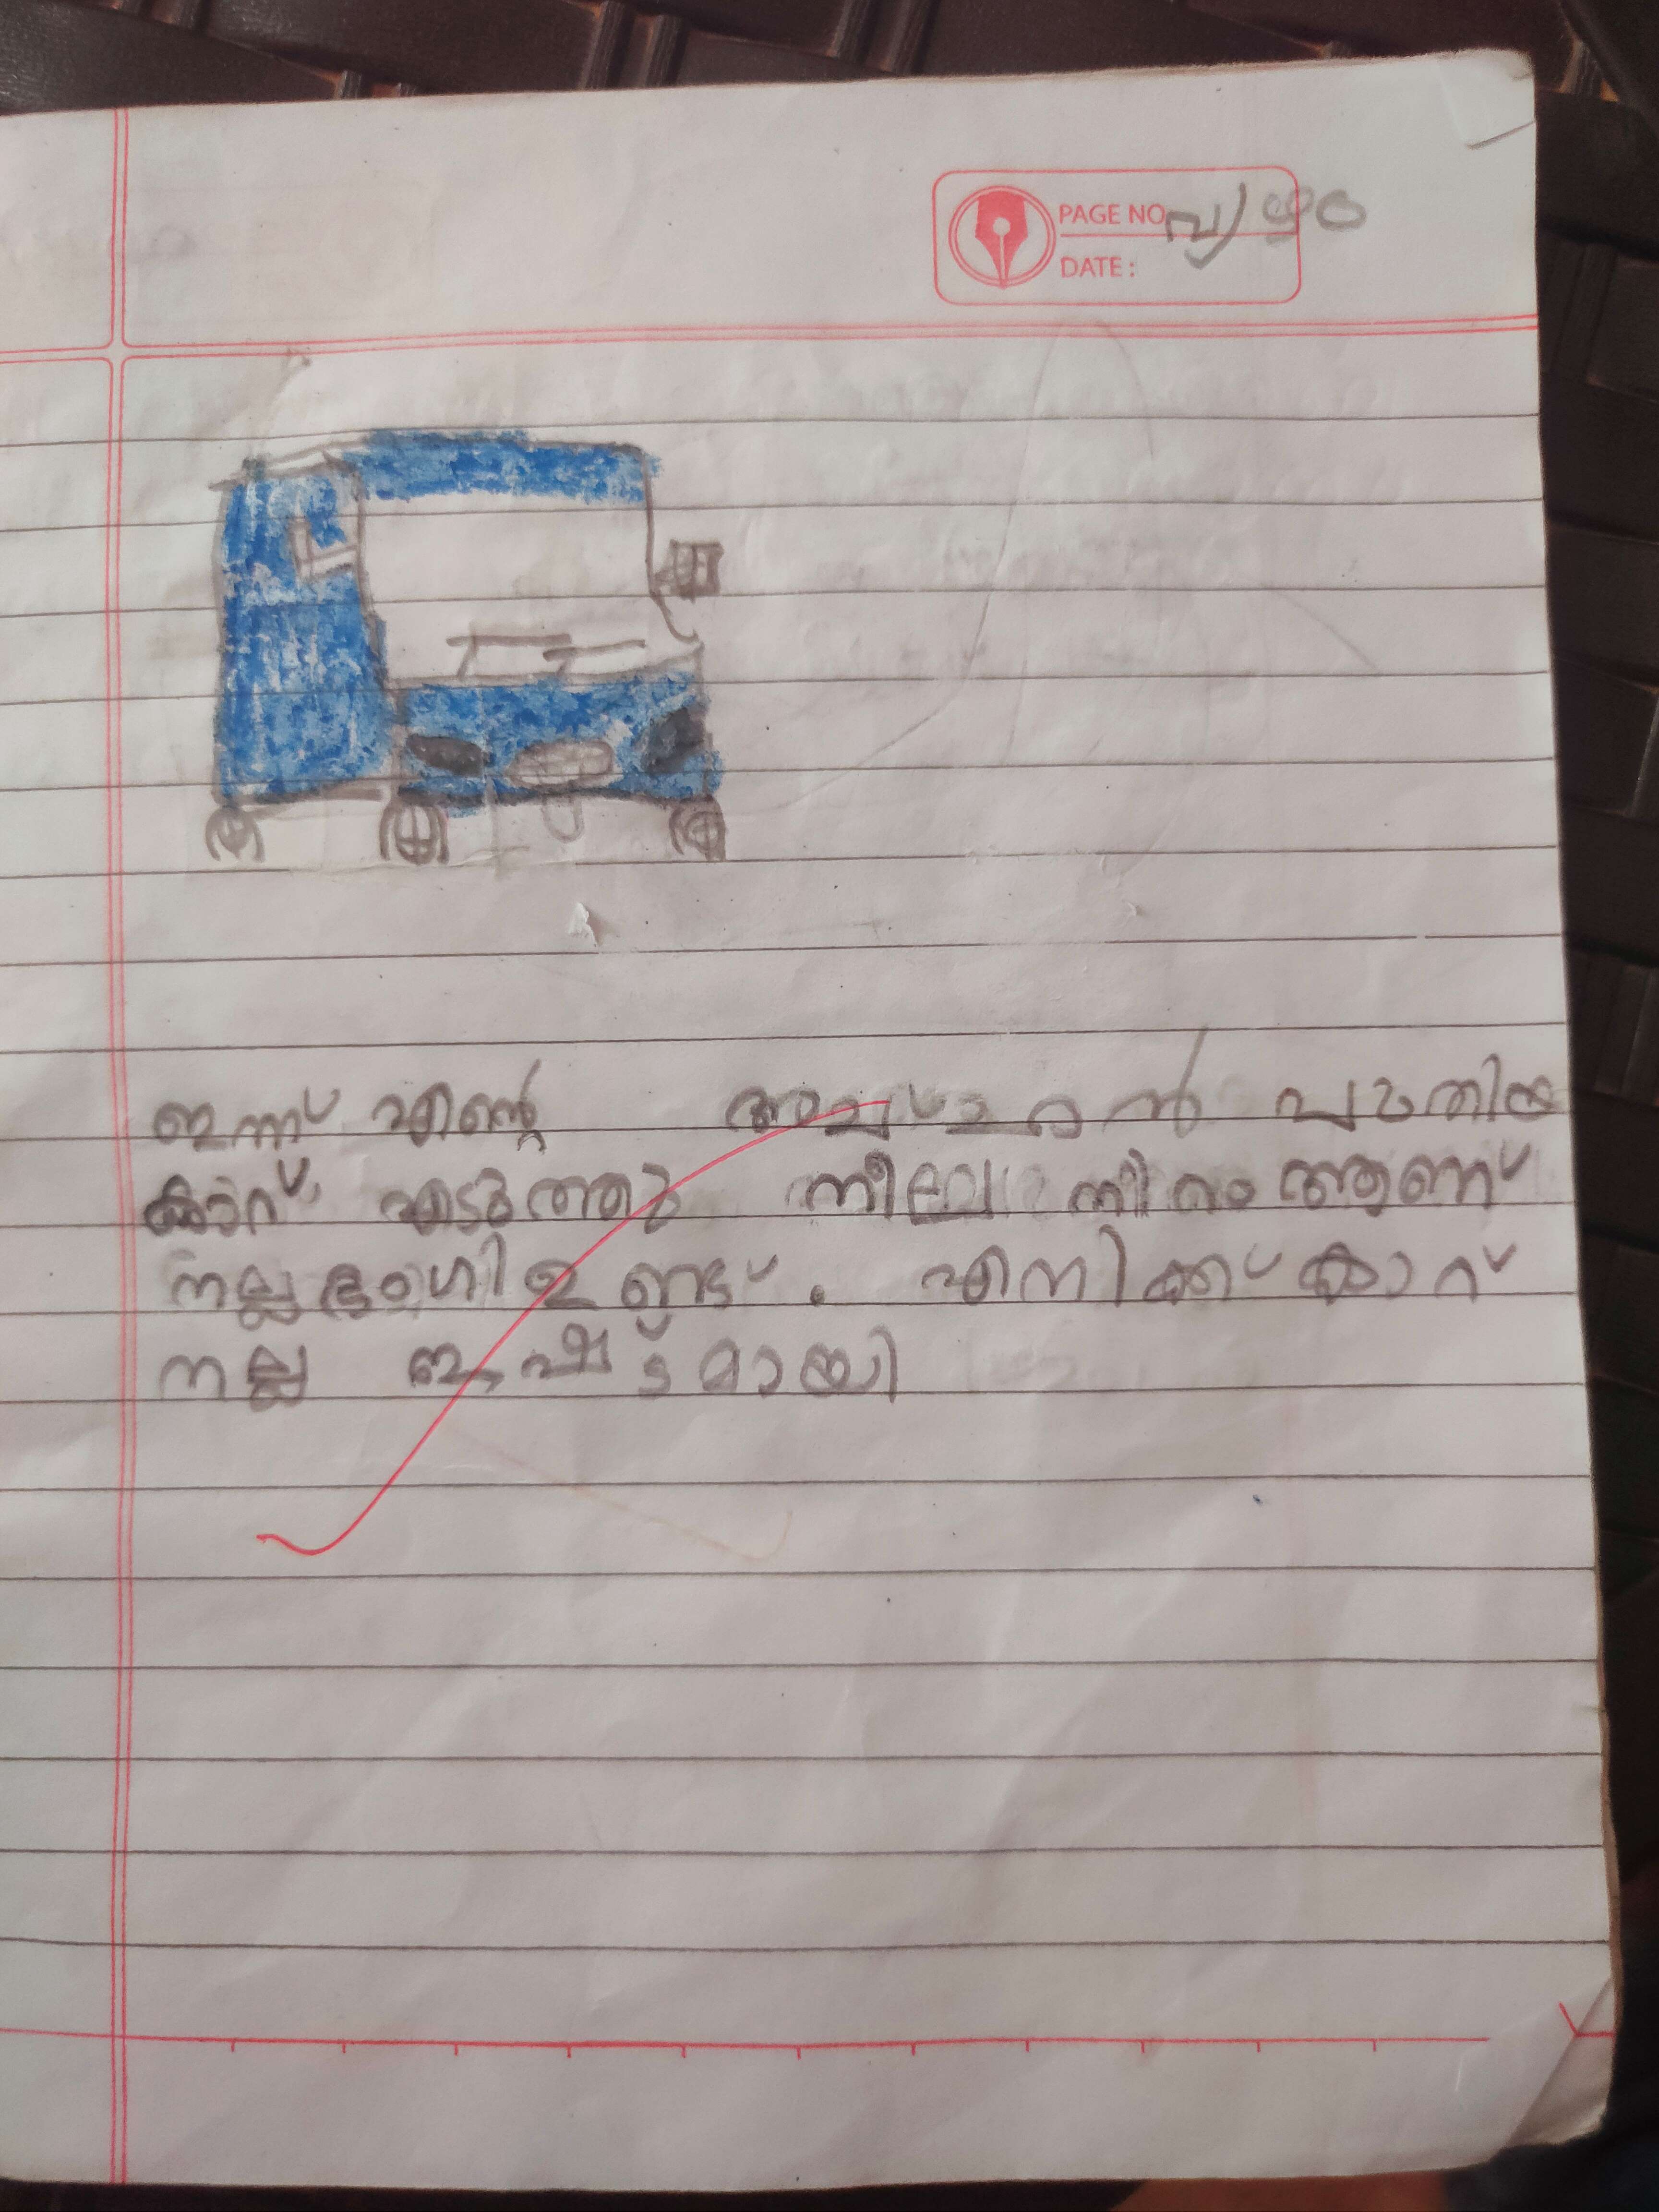 PAGE NO
വ്യാഴം
DATE :
ഇന്ന് എന്റെ അച്ചാച്ചൻ പുതിയ
കാറ് എടുത്തു നീല നിറം ആണ്
നല്ല ഭംഗി ഉണ്ട് . എനിക്ക് കാറ്
നല്ല ഇഷ്ടമായി